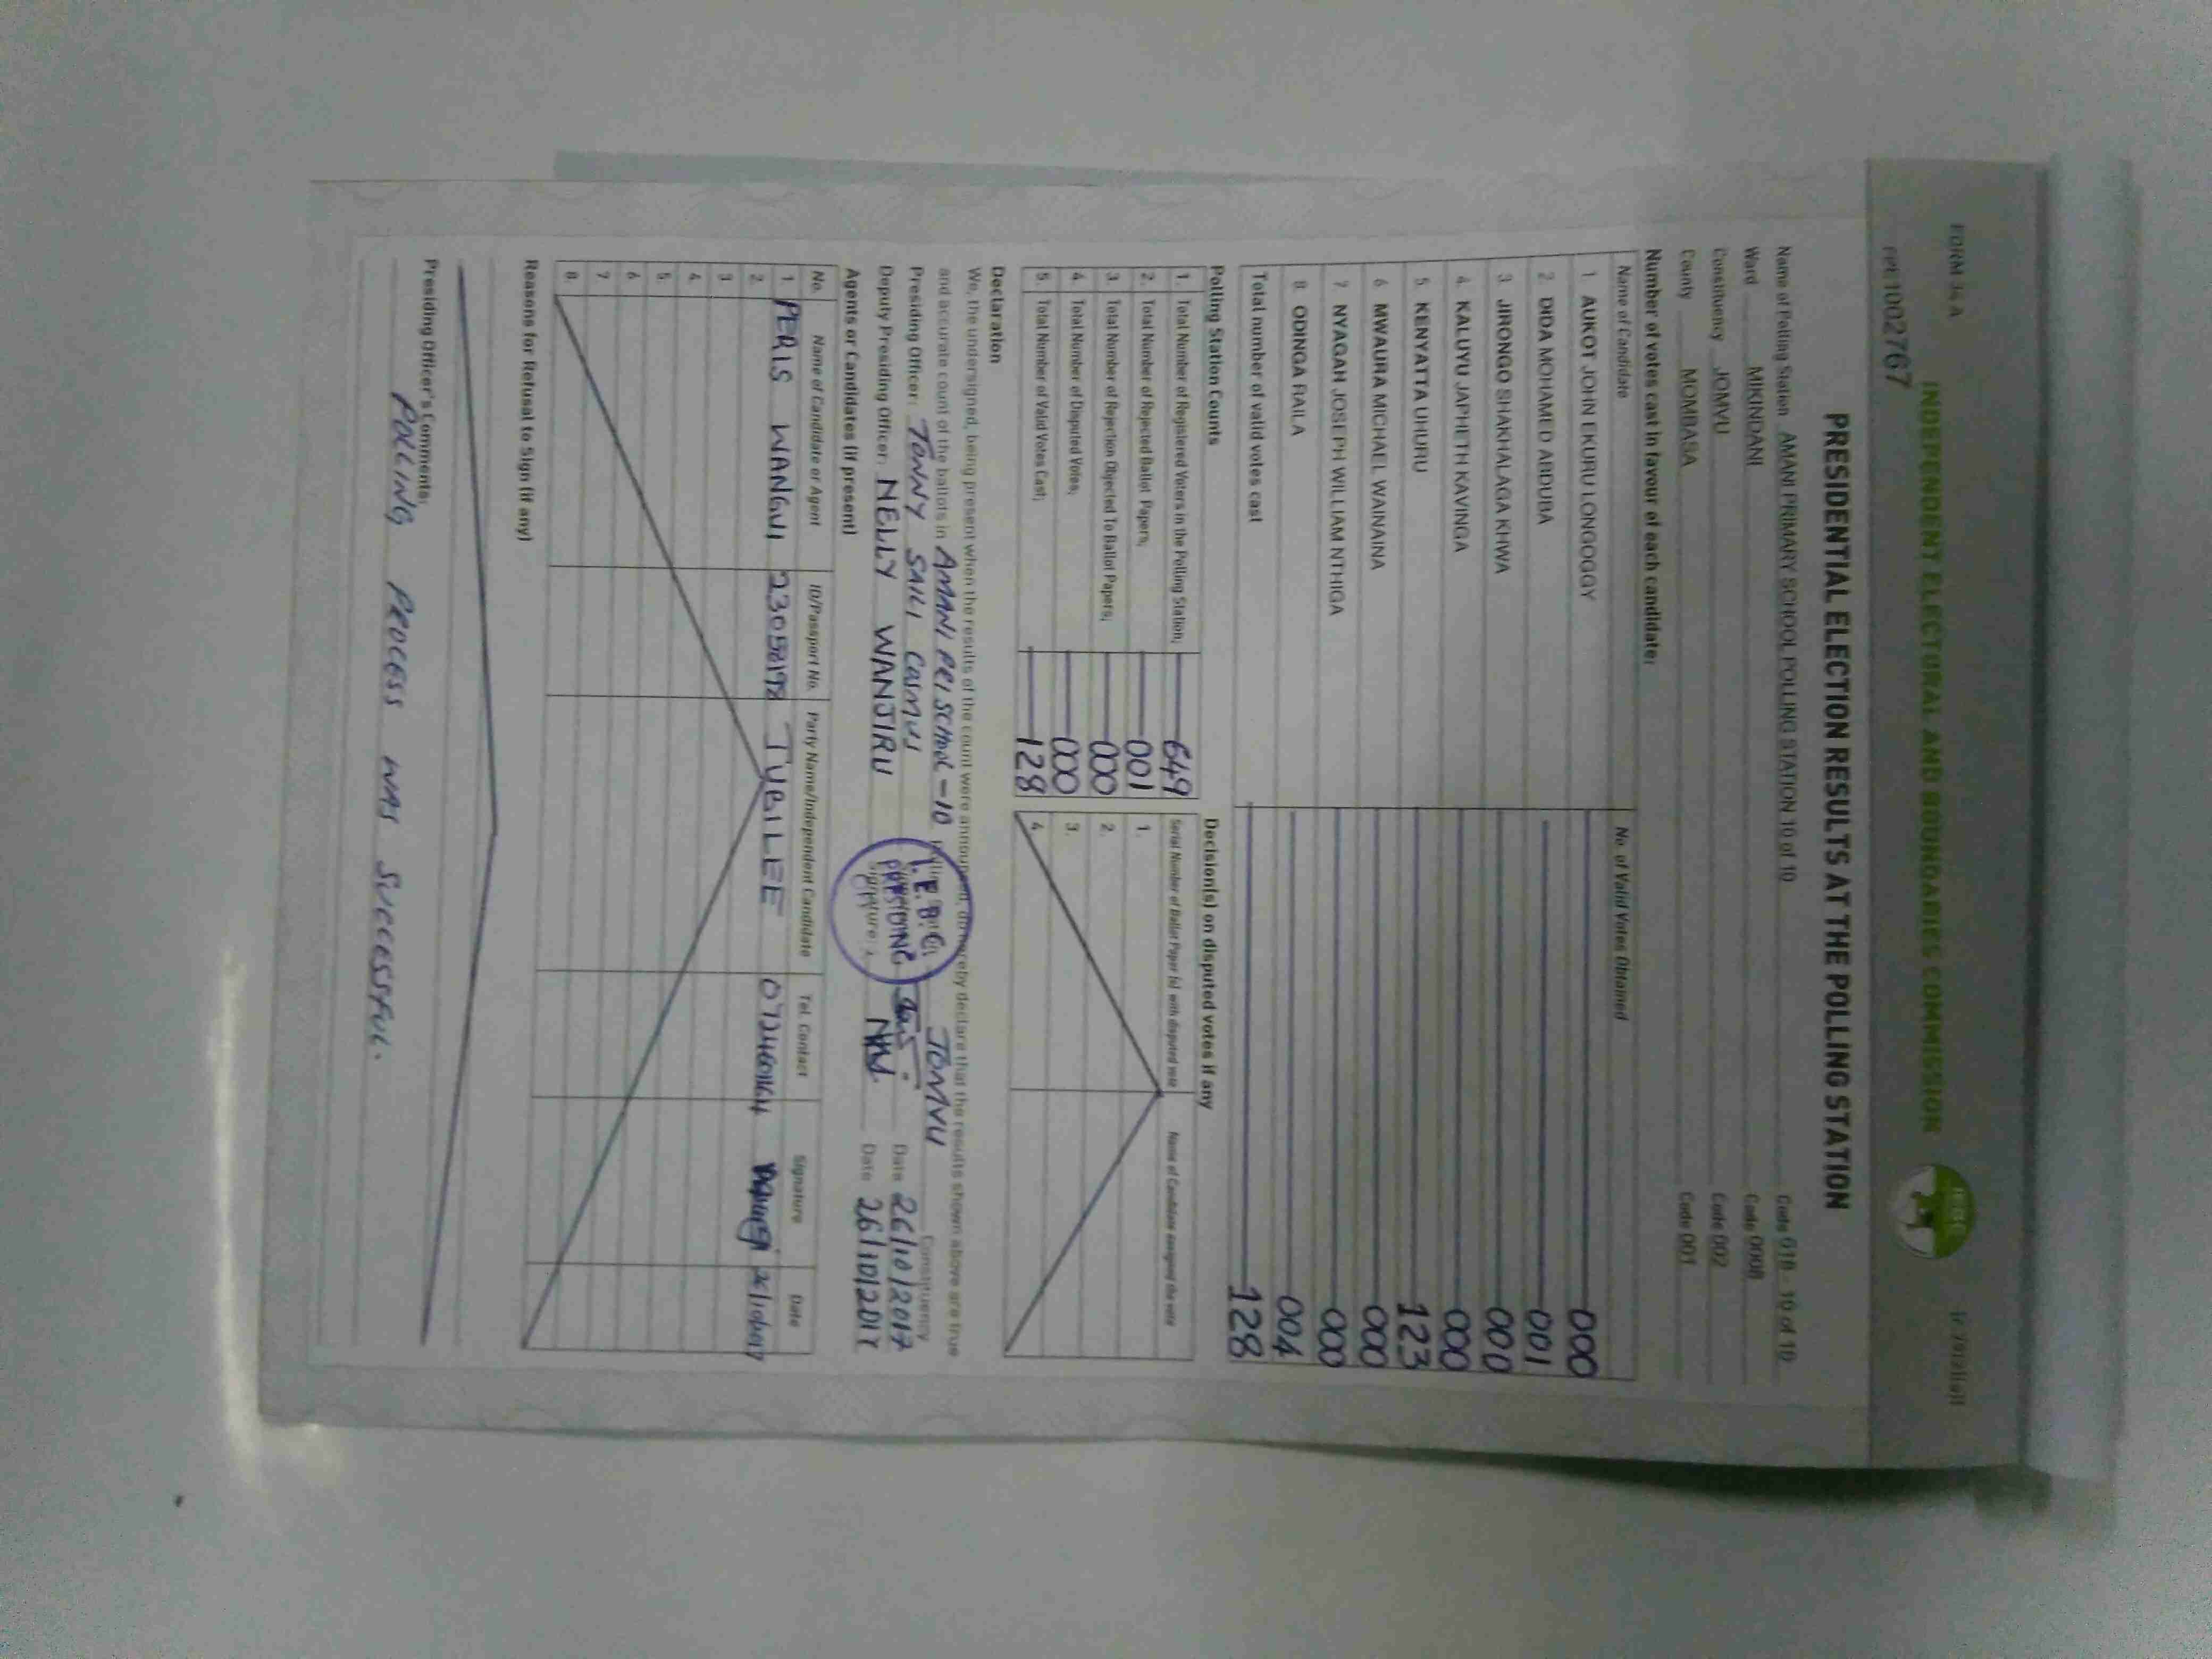 FORM 34 A
INDEPENDENT ELECTORAL AND BOUNDARIES COMMISSION
IEBC
PRESIDENTIAL ELECTION RESULTS AT THE POLLING STATION
Name of Polling Station AMANI PRIMARY SCHOOL POLLING STATION 10 of 10 Code 018 - 10 of 10
Ward MIKINDANI Code 0008
Constituency JOMVU Code 002
County MOMBASA Code 001
Number of votes cast in favour of each candidate:
Name of Candidate No. of Valid Votes Obtained
1. AUKOT JOHN EKURU LONGOGGY 000
2. DIDA MOHAMED ABDUBA 001
3. JIRONGO SHAKHALAGA KHWA 000
4. KALUYU JAPHETH KAVINGA 000
5. KENYATTA UHURU 123
6. MWAURA MICHAEL WAINAINA 000
7. NYAGAH JOSEPH WILLIAM NTHIGA 000
8. ODINGA RAILA 004
Total number of valid votes cast 128
Polling Station Counts
1. Total Number of Registered Voters in the Polling Station; 649
2. Total Number of Rejected Ballot Papers; 001
3. Total Number of Rejection Objected To Ballot Papers; 000
4. Total Number of Disputed Votes; 000
5. Total Number of Valid Votes Cast; 128
Decision(s) on disputed votes if any
Serial Number of Ballot Paper (s) with disputed vote Name of Candidate assigned the vote
1.
2.
3.
4.
Declaration
We, the undersigned, being present when the results of the count were announced, do hereby declare that the results shown above are true
and accurate count of the ballots in AMANI PRI SCHOOL - 10 JOMVU Constituency
Presiding Officer: TONNY SAILI COSMUS Date 26/10/2017
Deputy Presiding Officer: NELLY WANJIRU NW Date 26/10/2017
I.E.B.C.
PRESIDING
Agents or Candidates (if present)
No. Name of Candidate or Agent ID/Passport No. Party Name/Independent Candidate Tel. Contact Signature Date
1. PERIS WANGUI JUBILEE 26/10/2017
2.
3.
4.
5.
6.
7.
8.
Reasons for Refusal to Sign (if any)
Presiding Officer's Comments:
POLLING PROCESS WAS SUCCESSFUL.